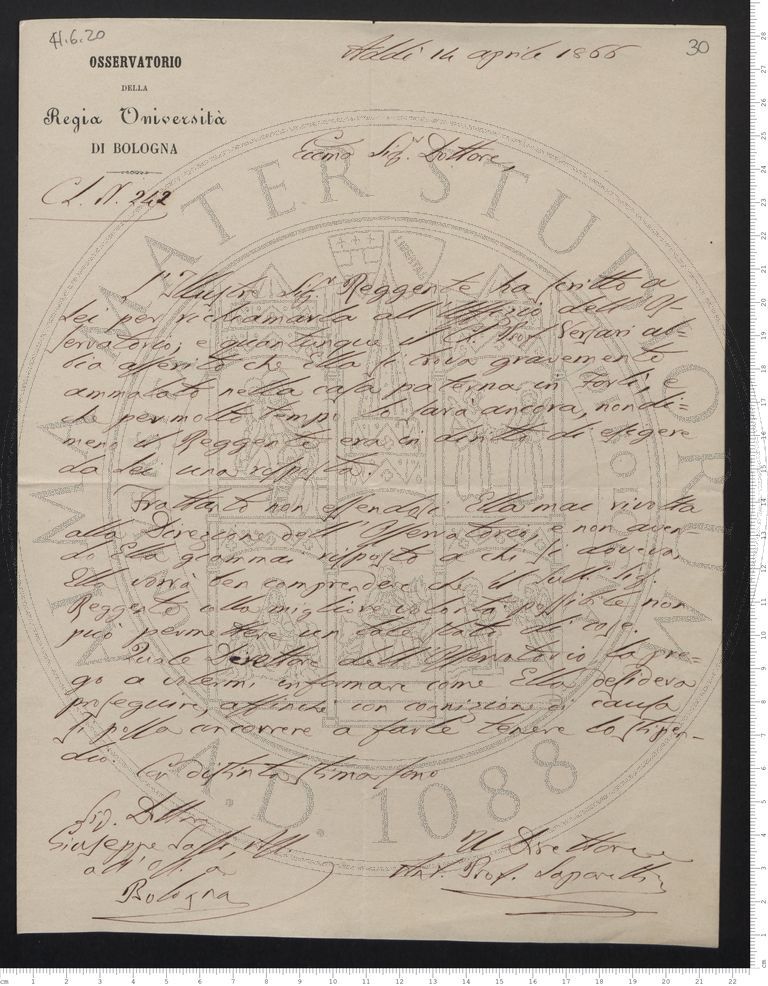 H.6.20
30
OSSERVATORIO
DELLA
Regia Università
DI BOLOGNA
Addì 14 aprile 1866
Eccmo Sig.r Dottore,
Cl. N. 242
L'Illustre Sig.r Reggente ha scritto a
Lei per richiamarla all'Uffizio dell'Os-
servatorio; e quantunque il Ch. Prof. Sersari ab-
bia asserito che Ella si trova gravemente
ammalato nella casa paterna in Forlì, e
che per molto tempo lo sarà ancora, nondi-
meno il Reggente era in diritto di esigere
da Lei una risposta.
Frattanto non essendosi Ella mai rivolta
alla Direzione dell'Osservatorio, e non aven-
do Ella giammai risposto a chi si doveva,
Ella vorrà ben comprendere che il Sig.
Reggente colla migliore volontà possibile non
può permettere un tale stato di cose.
Quale Direttore dell'Osservatorio la pre-
go a volermi informare come Ella desidera
proseguire, affinchè con cognizione di causa
si possa occorrere a farle tenere lo stipen-
dio. Con distinta stima sono
Sig. Dottore
Giuseppe
all'Oss. a
Bologna
Il Direttore
Ant. Prof. Saporetti
ALMA MATER STUDIORUM
A.D. 1088